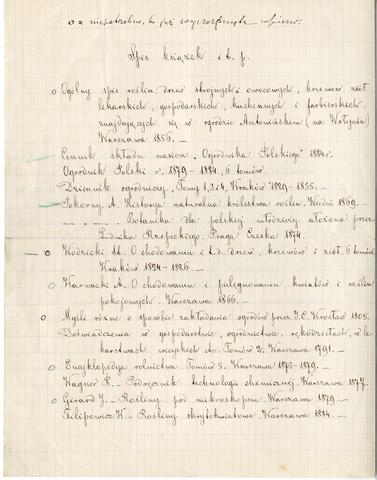 o = niepotrzebne, bo już wyczerpnięte
Spis książek i t. p.
o Ogólny spis roślin, drzew strojnych i owocowych, krzewów, ziół
lekarskich, gospodarskich, kuchennych i farbierskich
znajdujących się w ogrodzie Antonińskim (na Wołyniu)
Warszawa 1856. —
Cennik składu nasion „Ogrodnika Polskiego" 1884 r.
Ogrodnik Polski r. 1879 - 1884, 6 tomów.
Dziennik ogrodniczy. Tomy 1, 3 i 4. Kraków 1829 - 1835. —
Pokorny A. Historya naturalna królestwa roślin. Wiedeń 1869. —
— Botanika dla polskiej młodzieży ułożona przez
Ludwika Rzepeckiego. Praga Czeska 1874.
— o Wodzicki St. O chodowaniu i t. d. drzew, krzewów i ziół. 6 tomów.
Kraków 1824 - 1826. —
o Karwacki A. O chodowaniu i pielęgnowaniu kwiatów i roślin
pokojowych. Warszawa 1866. —
o Myśli różne o sposobie zakładania ogrodów przez I. C. Wrocław 1805.
Doświadczenia w gospodarstwie, ogrodnictwie, rękodziełach, w le-
karstwach wiejskich etc. Tomów 2. Warszawa 1791. —
o Encyklopedya rolnictwa Tomów 5. Warszawa 1873 - 1879. —
Wagner R. — Podręcznik technologii chemicznej. Warszawa 1877.
o Gérard J. — Rośliny pod mikroskopem. Warszawa 1879 —
Filipowicz K. — Rośliny skrytokwiatowe. Warszawa 1884. —